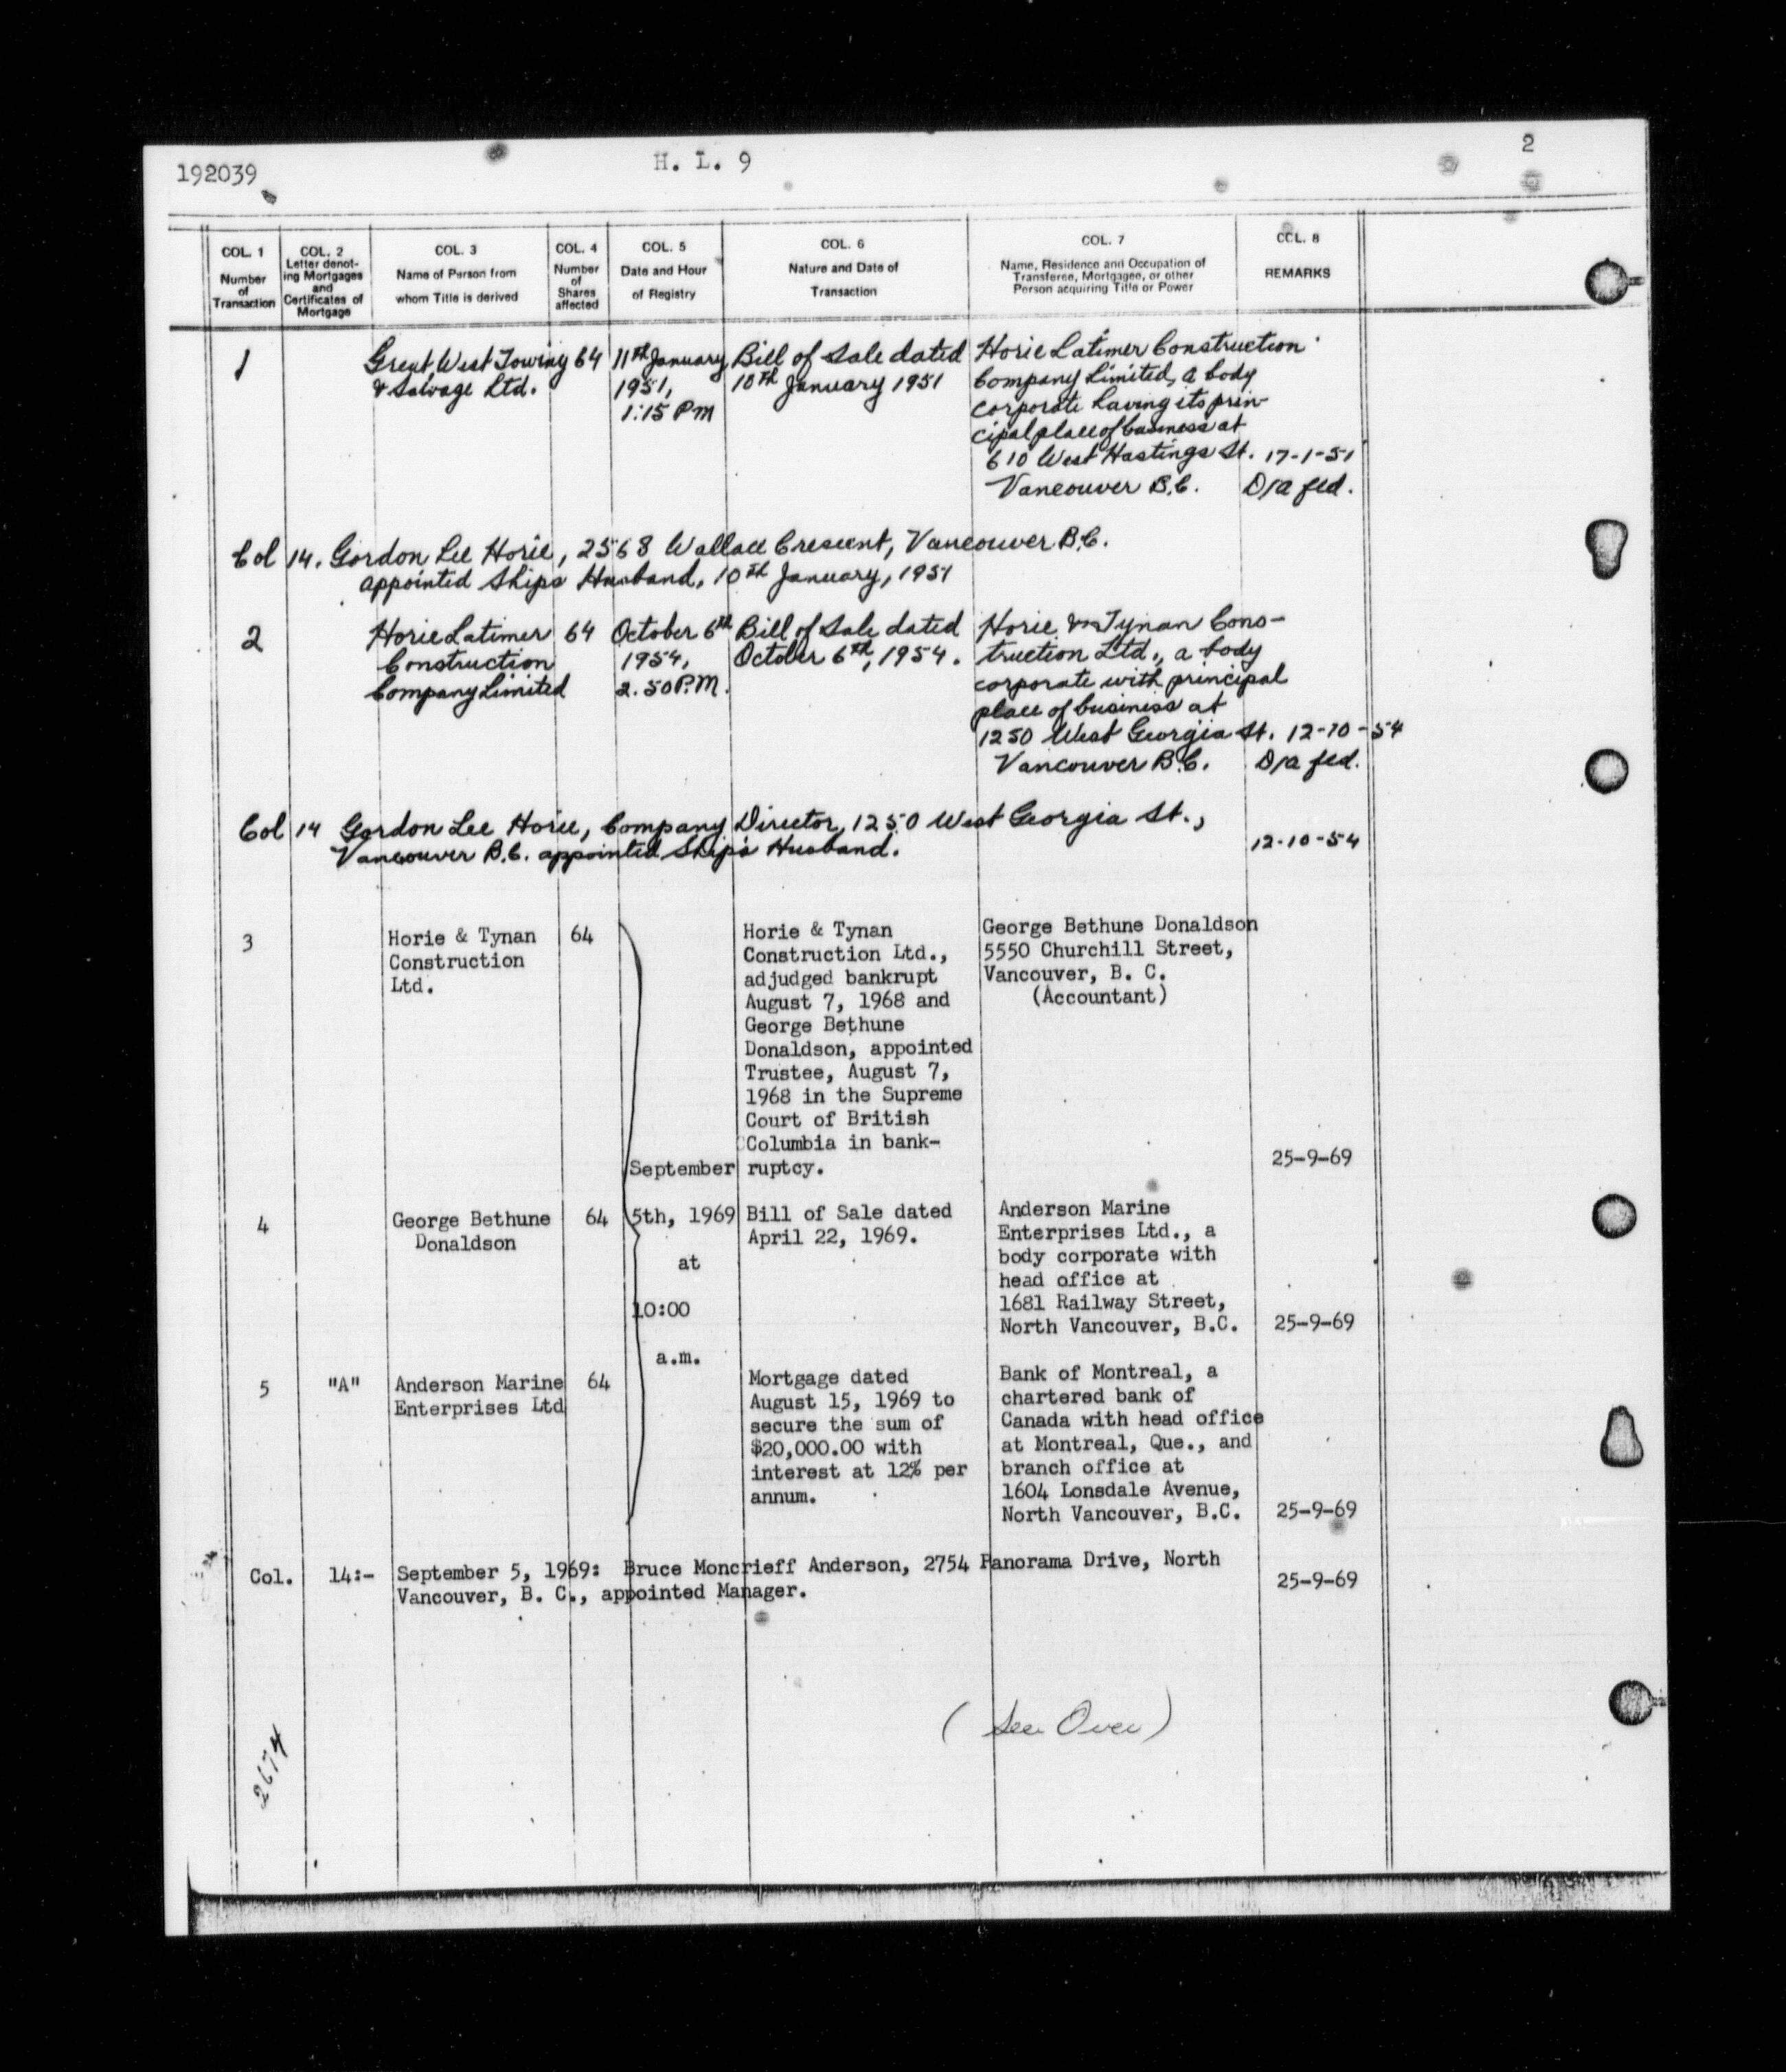 192039
H. L. 9
2
COL. 1
Number
of
Transaction
COL. 2
Letter denot-
ing Mortgages
and
Certificates of
Mortgage
COL. 3
Name of Person from
whom Title is derived
COL. 4
Number
of
Shares
affected
COL. 5
Date and Hour
of Registry
COL. 6
Nature and Date of
Transaction
COL. 7
Name, Residence and Occupation of
Transferee, Mortgagee, or other
Person acquiring Title or Power
COL. 8
REMARKS
1
Great West Towing
& Salvage Ltd.
64
11th January
1951,
1:15 PM
Bill of Sale dated
10th January 1951
Horie Latimer Construction
Company Limited, a body
corporate having its prin-
cipal place of business at
610 West Hastings St.
Vancouver B.C.
17-1-51
D/a fld.
Col 14. Gordon Lee Horie, 2568 Wallace Crescent, Vancouver B.C.
appointed Ships Husband, 10th January, 1951
2
Horie Latimer
Construction
Company Limited
64
October 6th
1954,
2.50 P.M.
Bill of Sale dated
October 6th, 1954.
Horie Tynan Cons-
truction Ltd., a body
corporate with principal
place of business at
1250 West Georgia St.
Vancouver B.C.
12-10-54
D/a fld.
Col 14 Gordon Lee Horie, Company Director, 1250 West Georgia St.,
Vancouver B.C. appointed Ship's Husband.
12-10-54
3
Horie & Tynan
Construction
Ltd.
64
Horie & Tynan
Construction Ltd.,
adjudged bankrupt
August 7, 1968 and
George Bethune
Donaldson, appointed
Trustee, August 7,
1968 in the Supreme
Court of British
Columbia in bank-
ruptcy.
George Bethune Donaldson
5550 Churchill Street,
Vancouver, B. C.
(Accountant)
25-9-69
September
5th, 1969
at
10:00
a.m.
4
George Bethune
Donaldson
64
Bill of Sale dated
April 22, 1969.
Anderson Marine
Enterprises Ltd., a
body corporate with
head office at
1681 Railway Street,
North Vancouver, B.C.
25-9-69
5
"A"
Anderson Marine
Enterprises Ltd
64
Mortgage dated
August 15, 1969 to
secure the sum of
$20,000.00 with
interest at 12% per
annum.
Bank of Montreal, a
chartered bank of
Canada with head office
at Montreal, Que., and
branch office at
1604 Lonsdale Avenue,
North Vancouver, B.C.
25-9-69
Col. 14:- September 5, 1969: Bruce Moncrieff Anderson, 2754 Panorama Drive, North
Vancouver, B. C., appointed Manager.
25-9-69
(See Over)
2674